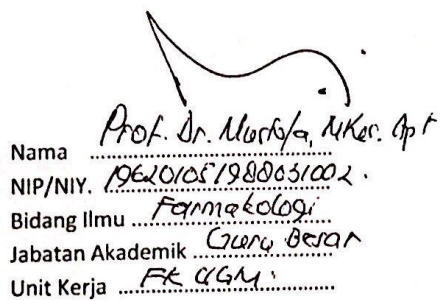 Nama Prof. Dr. Mustofa, MKes. Apt
NIP/NIY. 196201051988031002.
Bidang Ilmu Farmakologi
Jabatan Akademik Guru Besar
Unit Kerja FK UGM.